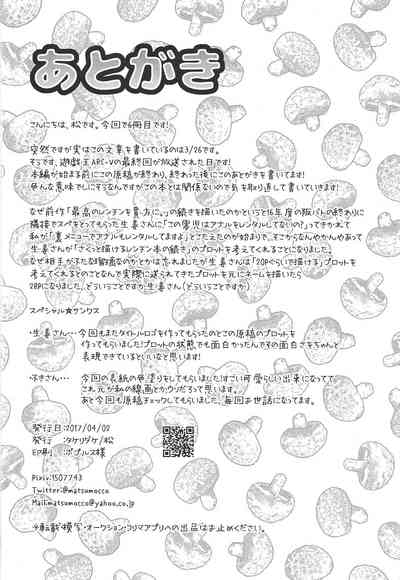 あとがき
こんにちは、松です。今回で6冊目です!
突然ですが実はこの文章を書いているのは3/26です。
そうです、遊戯王ARC-Vの最終回が放送された日です!
本編が始まる前にこの原稿が終わり、終わった後にこのあとがきを書いてます!
色んな意味でしにそうなんですがこの本とは関係ないので気を取り直して書いていきます!
なぜ前作「最高のレンチンを貴方に。」の続きを描いたのかというと16年度の阪パトの終わりに
隣接でスペをとってもらった生姜さんに「この
はアナルをレンタルしてないの?」ってきかれて
私が「裏メニューでアナルもレンタルしてますよ」とこたえたのが始まりで、そこからなんやかんやあって
生姜さんが「さくっと描けるレンチン本の続き」のプロットを考えてくれることになりました。
なぜ相手が
なのかとかは忘れましたが生姜さんは「20Pぐらいで描ける」プロットを
考えてくれるとのことなんで実際に送られてきたプロットを元にネームを描いたら
28Pになりました。どういうことですか生姜さん(どういうことですか)
スペシャル☆サンクス
・生姜さん… 今回もまたタイトルロゴを作ってもらったのとこの原稿のプロットを
作ってもらいました!プロットの状態でも面白かったんでその面白さをちゃんと
表現できているといいなと思います!
さん… 今回の表紙の色塗りをしてもらいました!すごい可愛らしい出来になってて
これ元が私の線画とかウソだろって思います。
あと今回も原稿チェックしてもらいました。毎回お世話になってます。
発行日:2017/04/02
発行 :タケリダケ/松
印刷 :ポプルス様
Pixiv:1507743
Twitter:@matsumocco
Mail:matsumocco@yahoo.co.jp
※転載・複写・オークション・フリマアプリへの出品はお止めください。